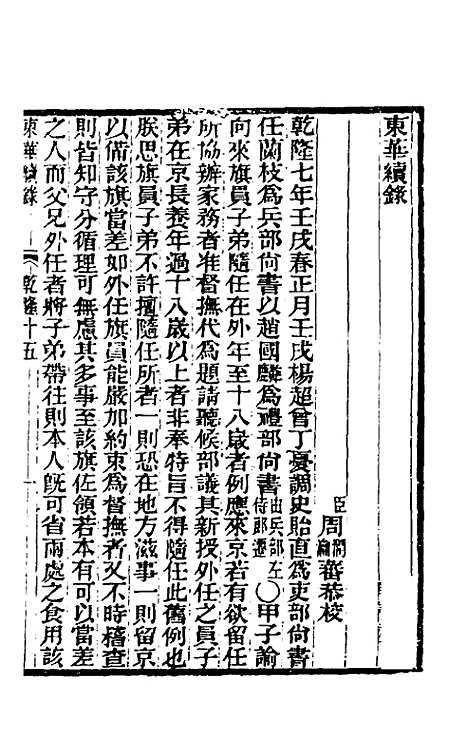 東華續錄
臣周潤蕃恭校
乾隆七年壬戌春正月壬戌楊超曾丁憂調史貽直爲吏部尚書
任蘭枝爲兵部尚書以趙國麟爲禮部尚書由兵部左侍郎遷○甲子諭
向來旗員子弟隨任在外年至十八歲者例應來京若有欲留任
所協辦家務者准督撫代爲題請聽候部議其新授外任之員子
弟在京長養年過十八歲以上者非奉特旨不得隨任此舊例也
朕思旗員子弟不許擅隨任所者一則恐在地方滋事一則留京
以備該旗當差如外任旗員能嚴加約束爲督撫者又不時稽查
則皆知守分循理可無慮其多事至該旗佐領若本有可以當差
之人而父兄外任者將子弟帶往則本人旣可省兩處之食用該
東華續錄 乾隆十五